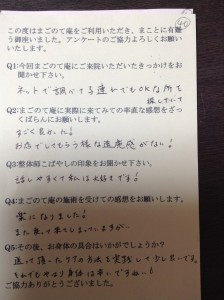 この度はまごのて庵をご利用いただき、まことに有難
う御座いました。アンケートのご協力よろしくお願い
いたします。
Q1:今回まごのて庵にご来院いただいたきっかけをお
聞かせ下さい。
ネットで調べて子連れでもOKな所を
探していて
Q2:まごのて庵に実際に来てみての率直な感想をざっ
くばらんにお願いします。
すごく良かった!
お店でしてもらう様な違和感がなし!
Q3:整体師こばやしの印象をお聞かせ下さい。
話しやすくて私は大好きです!
Q4:まごのて庵の施術を受けての感想をお願いします。
楽になりました!
また来て楽しみしていますが…
Q5:その後、お身体の具合はいかがでしょうか?
通って
の方法を実践して少し良いです。
それでもやはり身体は辛いですね…!
ご協力ありがとうございました。